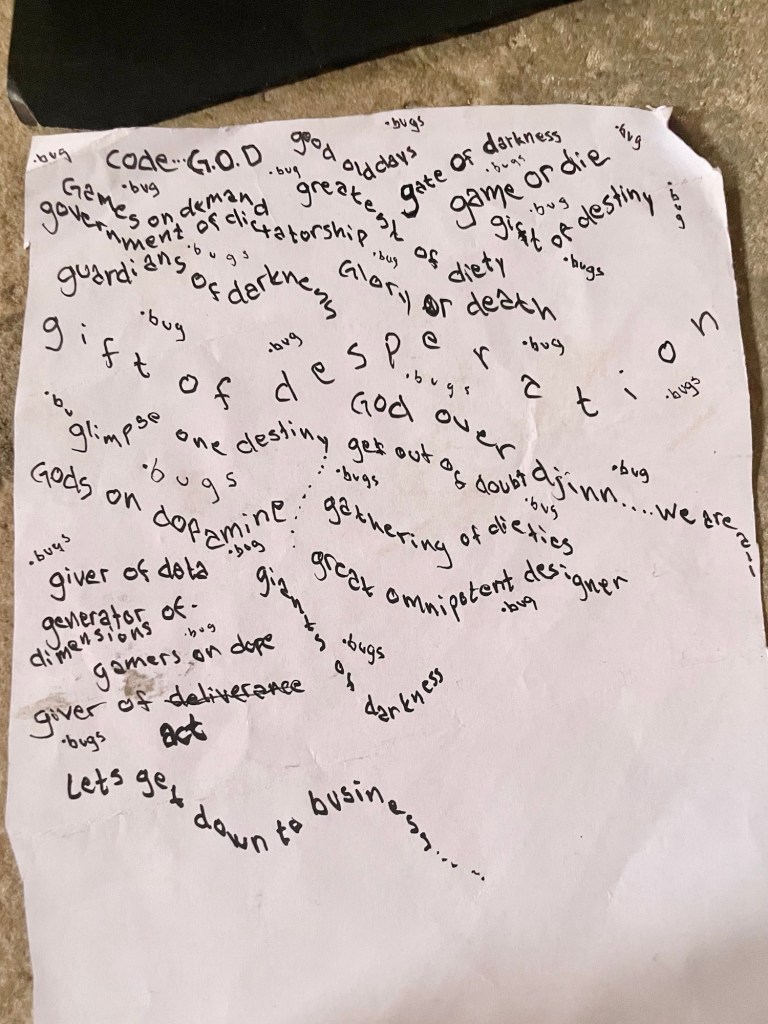 .bug code...G.O.D good old days .bugs gate of darkness .bug
Games on demand .bug
.bug greatest of diety
.bugs game or die
government of dictatorship .bugs
gift of destiny .bug .bug
guardians of darkness .bugs
Glory or death .bug .bugs
gift of desperation .bug .bug .bug .bugs
God over .bugs
glimpse one destiny
get out of doubt djinn....we are all .bug
Gods on dopamine...... .bugs
.bugs gathering of dieties .bug
.bugs giver of data .bug
great omnipotent designer .bug
generator of-
dimensions .bug
giants of darkness .bugs
gamers on dope
giver of deliverance
.bugs act
Lets get down to business......